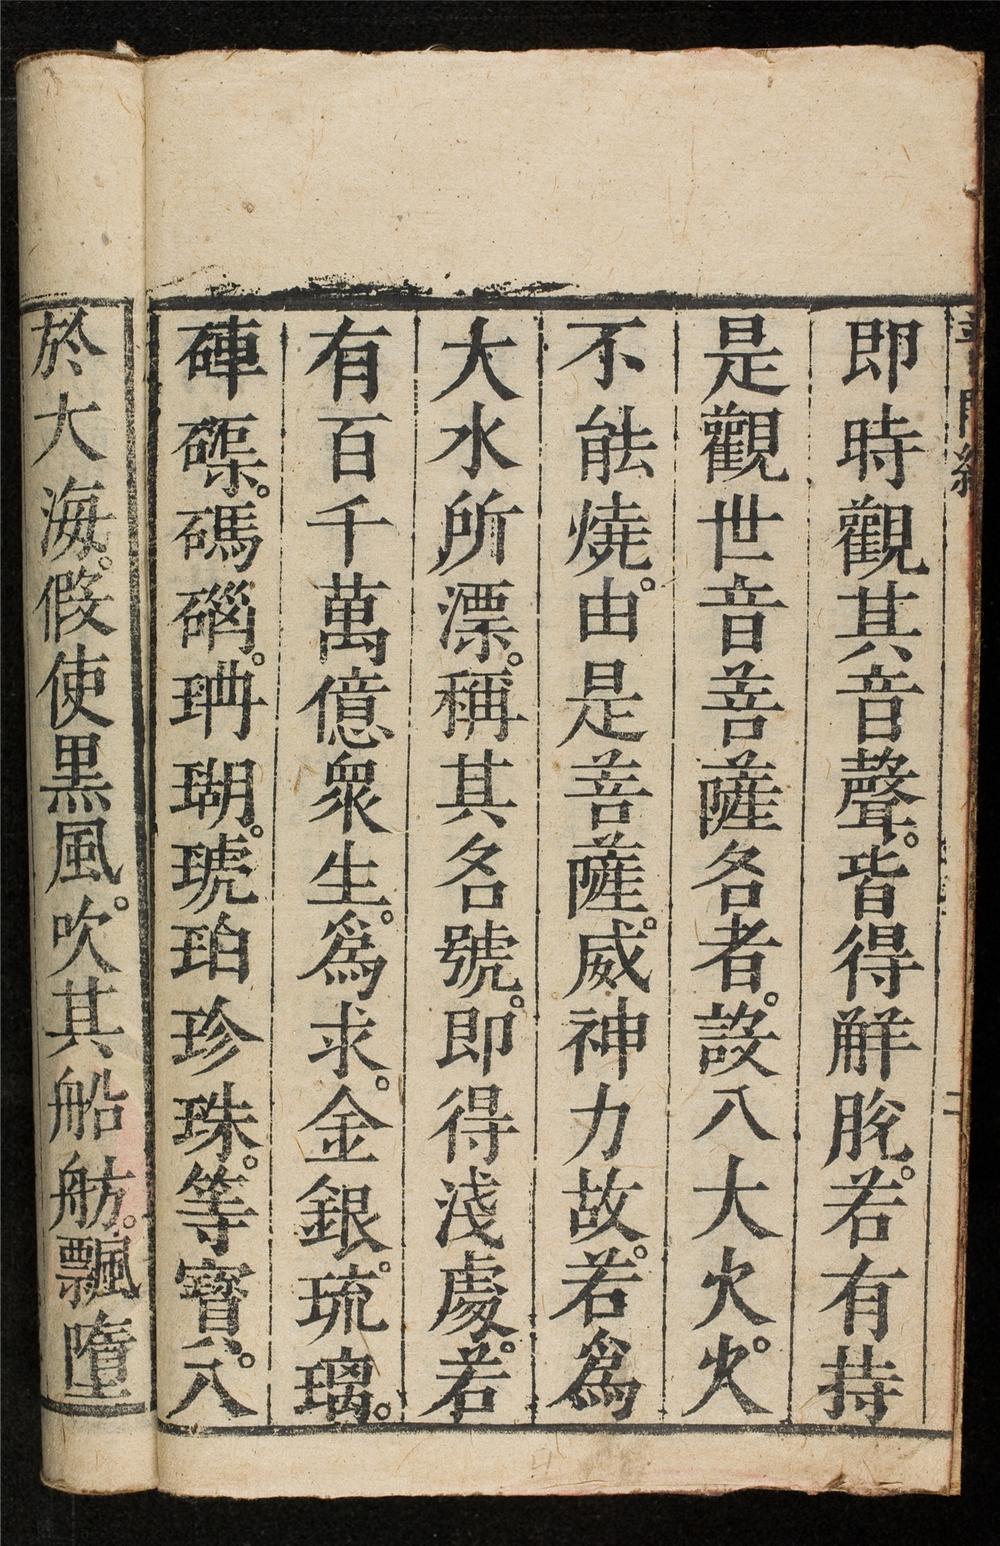 即時觀其音聲。皆得解脫。若有持
是觀世音菩薩名者。設入大火。火
不能燒。由是菩薩。威神力故。若爲
大水所漂。稱其名號。即得淺處。若
有百千萬億衆生。爲求。金銀。琉璃。
硨磲。碼碯。珊瑚。琥珀珍珠。等寶。入
於大海。假使黒風。吹其船舫。飄墮